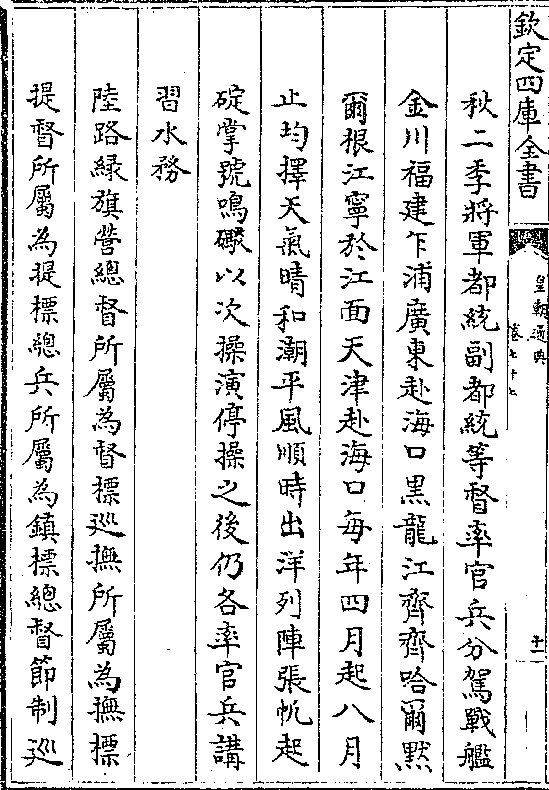 欽定四庫全書
皇朝通典
卷七十七
秋二季將軍都統副都統等督率官兵分駕戰艦
金川福建乍浦廣東赴海口黑龍江齊齊哈爾黙
爾根江寧於江面天津赴海口每年四月起八月
止均擇天氣晴和潮平風順時出洋列陣張帆起
碇掌號鳴礮以次操演停操之後仍各率官兵講
習水務
陸路緑旗營總督所屬為督標廵撫所屬為撫標
提督所屬為提標總兵所屬為鎮標總督節制廵